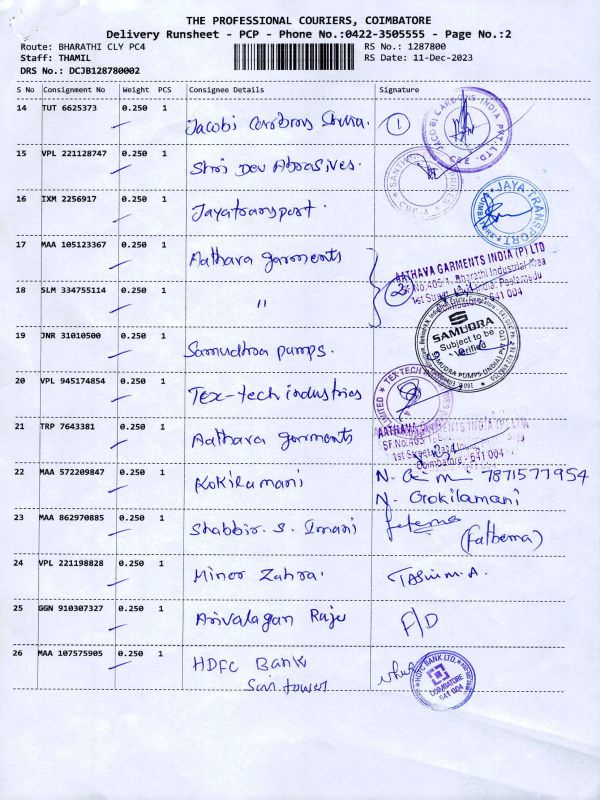 THE PROFESSIONAL COURIERS, COIMBATORE
Delivery Runsheet - PCP - Phone No.:0422-3505555 - Page No.:2
Route: BHARATHI CLY PC4 RS No.: 1287800
Staff: THAMIL RS Date: 11-Dec-2023
DRS No.: DCJB128780002
S No Consignment No Weight PCS Consignee Details Signature
14 TUT 6625373 0.250 1 Jacobi Carbons India. 1
JACOBI CARBONS INDIA PVT. LTD. CBE
15 VPL 221128747 0.250 1 Shri Dev Abrasives.
16 IXM 2256917 0.250 1 Jayatransport.
JAYA TRANSPORT
17 MAA 105123367 0.250 1 Aathava garments
AATHAVA GARMENTS INDIA (P) LTD
SF.No.405-1, Bharathi Industrial Area
1st Street, Peelamedu
641 004
18 SLM 334755114 0.250 1 " 2
19 JNR 31010500 0.250 1 Samudhra pumps.
S
SAMUDRA
Subject to be
Verified
SAMUDRA PUMPS (INDIA) P LTD
20 VPL 945174854 0.250 1 Tex-tech industries
TEX-TECH LIMITED
21 TRP 7643381 0.250 1 Aathava garments
AATHAVA GARMENTS INDIA (P) LTD
SF.No.405-1,
1st Street
Coimbatore - 641 004
22 MAA 572209847 0.250 1 Kokilamani N. 7871577954
N. Gokilamani
23 MAA 862970885 0.250 1 Shabbir. S. Imani fatema
(Fathema)
24 VPL 221198828 0.250 1 Minor Zahra. Tasnim.A.
25 GGN 910307327 0.250 1 Arivalagan Raju F/D
26 MAA 107575905 0.250 1 HDFC Bank
Sun tower
HDFC BANK LTD. COIMBATORE 641 004